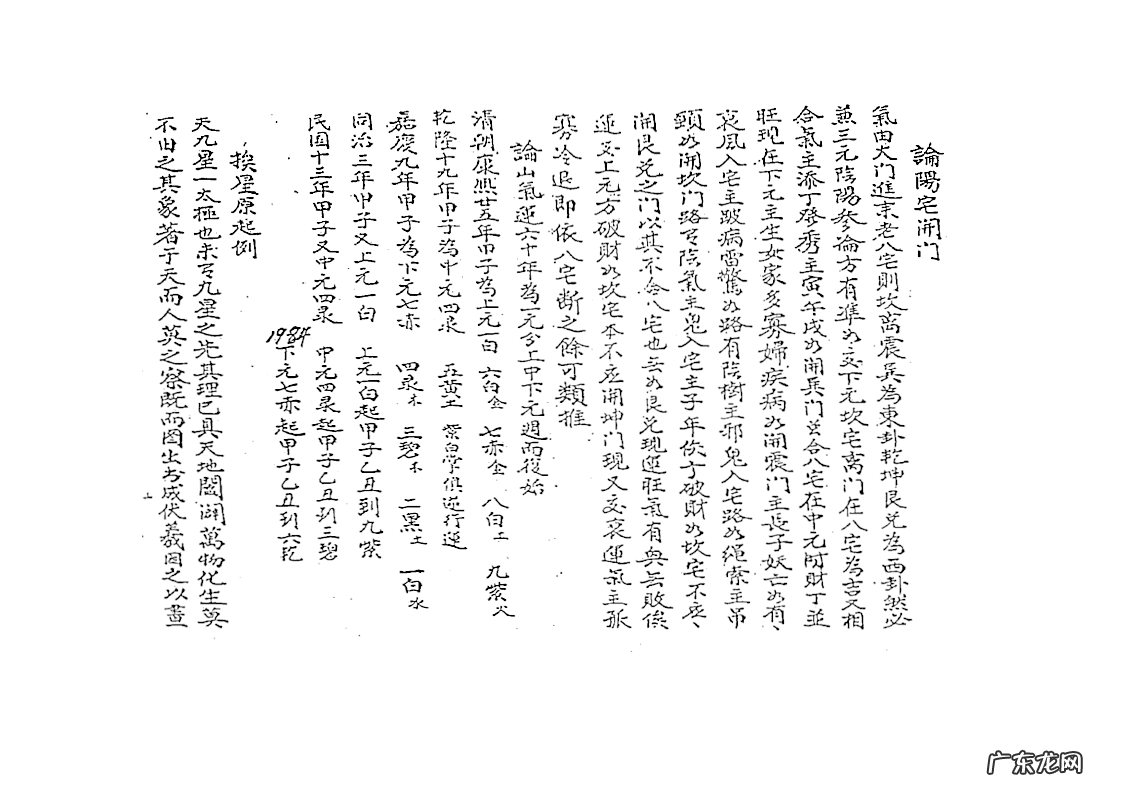 論陽宅開門
氣由大门進來老八宅則坎离震巽為東卦乾坤艮兑為西卦然必
兼三元陰陽參論方有準如交下元坎宅离门在八宅為吉又相
合氣主添丁發秀主寅午戌如開巽门总合八宅在中元財丁並
旺現在下元主生女家多寡婦疾病如開震门主長子妖亡如有、
衰風入宅主跛病雷驚如路有陰樹主邪鬼入宅路如绳索主吊
頸如開坎门路有陰氣主鬼入宅主子年傷丁破財如坎宅不应、
開艮兑之门以其不合八宅也去如艮兑現運旺氣有興去敗俟
運交上元方破財如坎宅本不应開坤门現又交衰運氣主孤
寡冷退即依八宅断之餘可類推
論山氣運六十年為一元分上中下元週而後始
清朝康熙廿五年甲子為上元一白 六白金 七赤金 八白土 九紫火
乾隆十九年甲子為中元四录 五黄土 紫白掌俱逆行運
嘉慶九年甲子為下元七赤 四录木 三碧木 二黑土 一白水
同治三年甲子又上元一白 上元一白起甲子乙丑到九紫
民囯十三年甲子又中元四录 中元四录起甲子乙丑到三碧
1984 下元七赤起甲子乙丑到六乾
挨星原起例
天九星一太極也未有九星之先其理已具天地闔闢萬物化生莫
不由之其象著于天而人英之察既而图出书成伏羲因之以畫
广东龙网